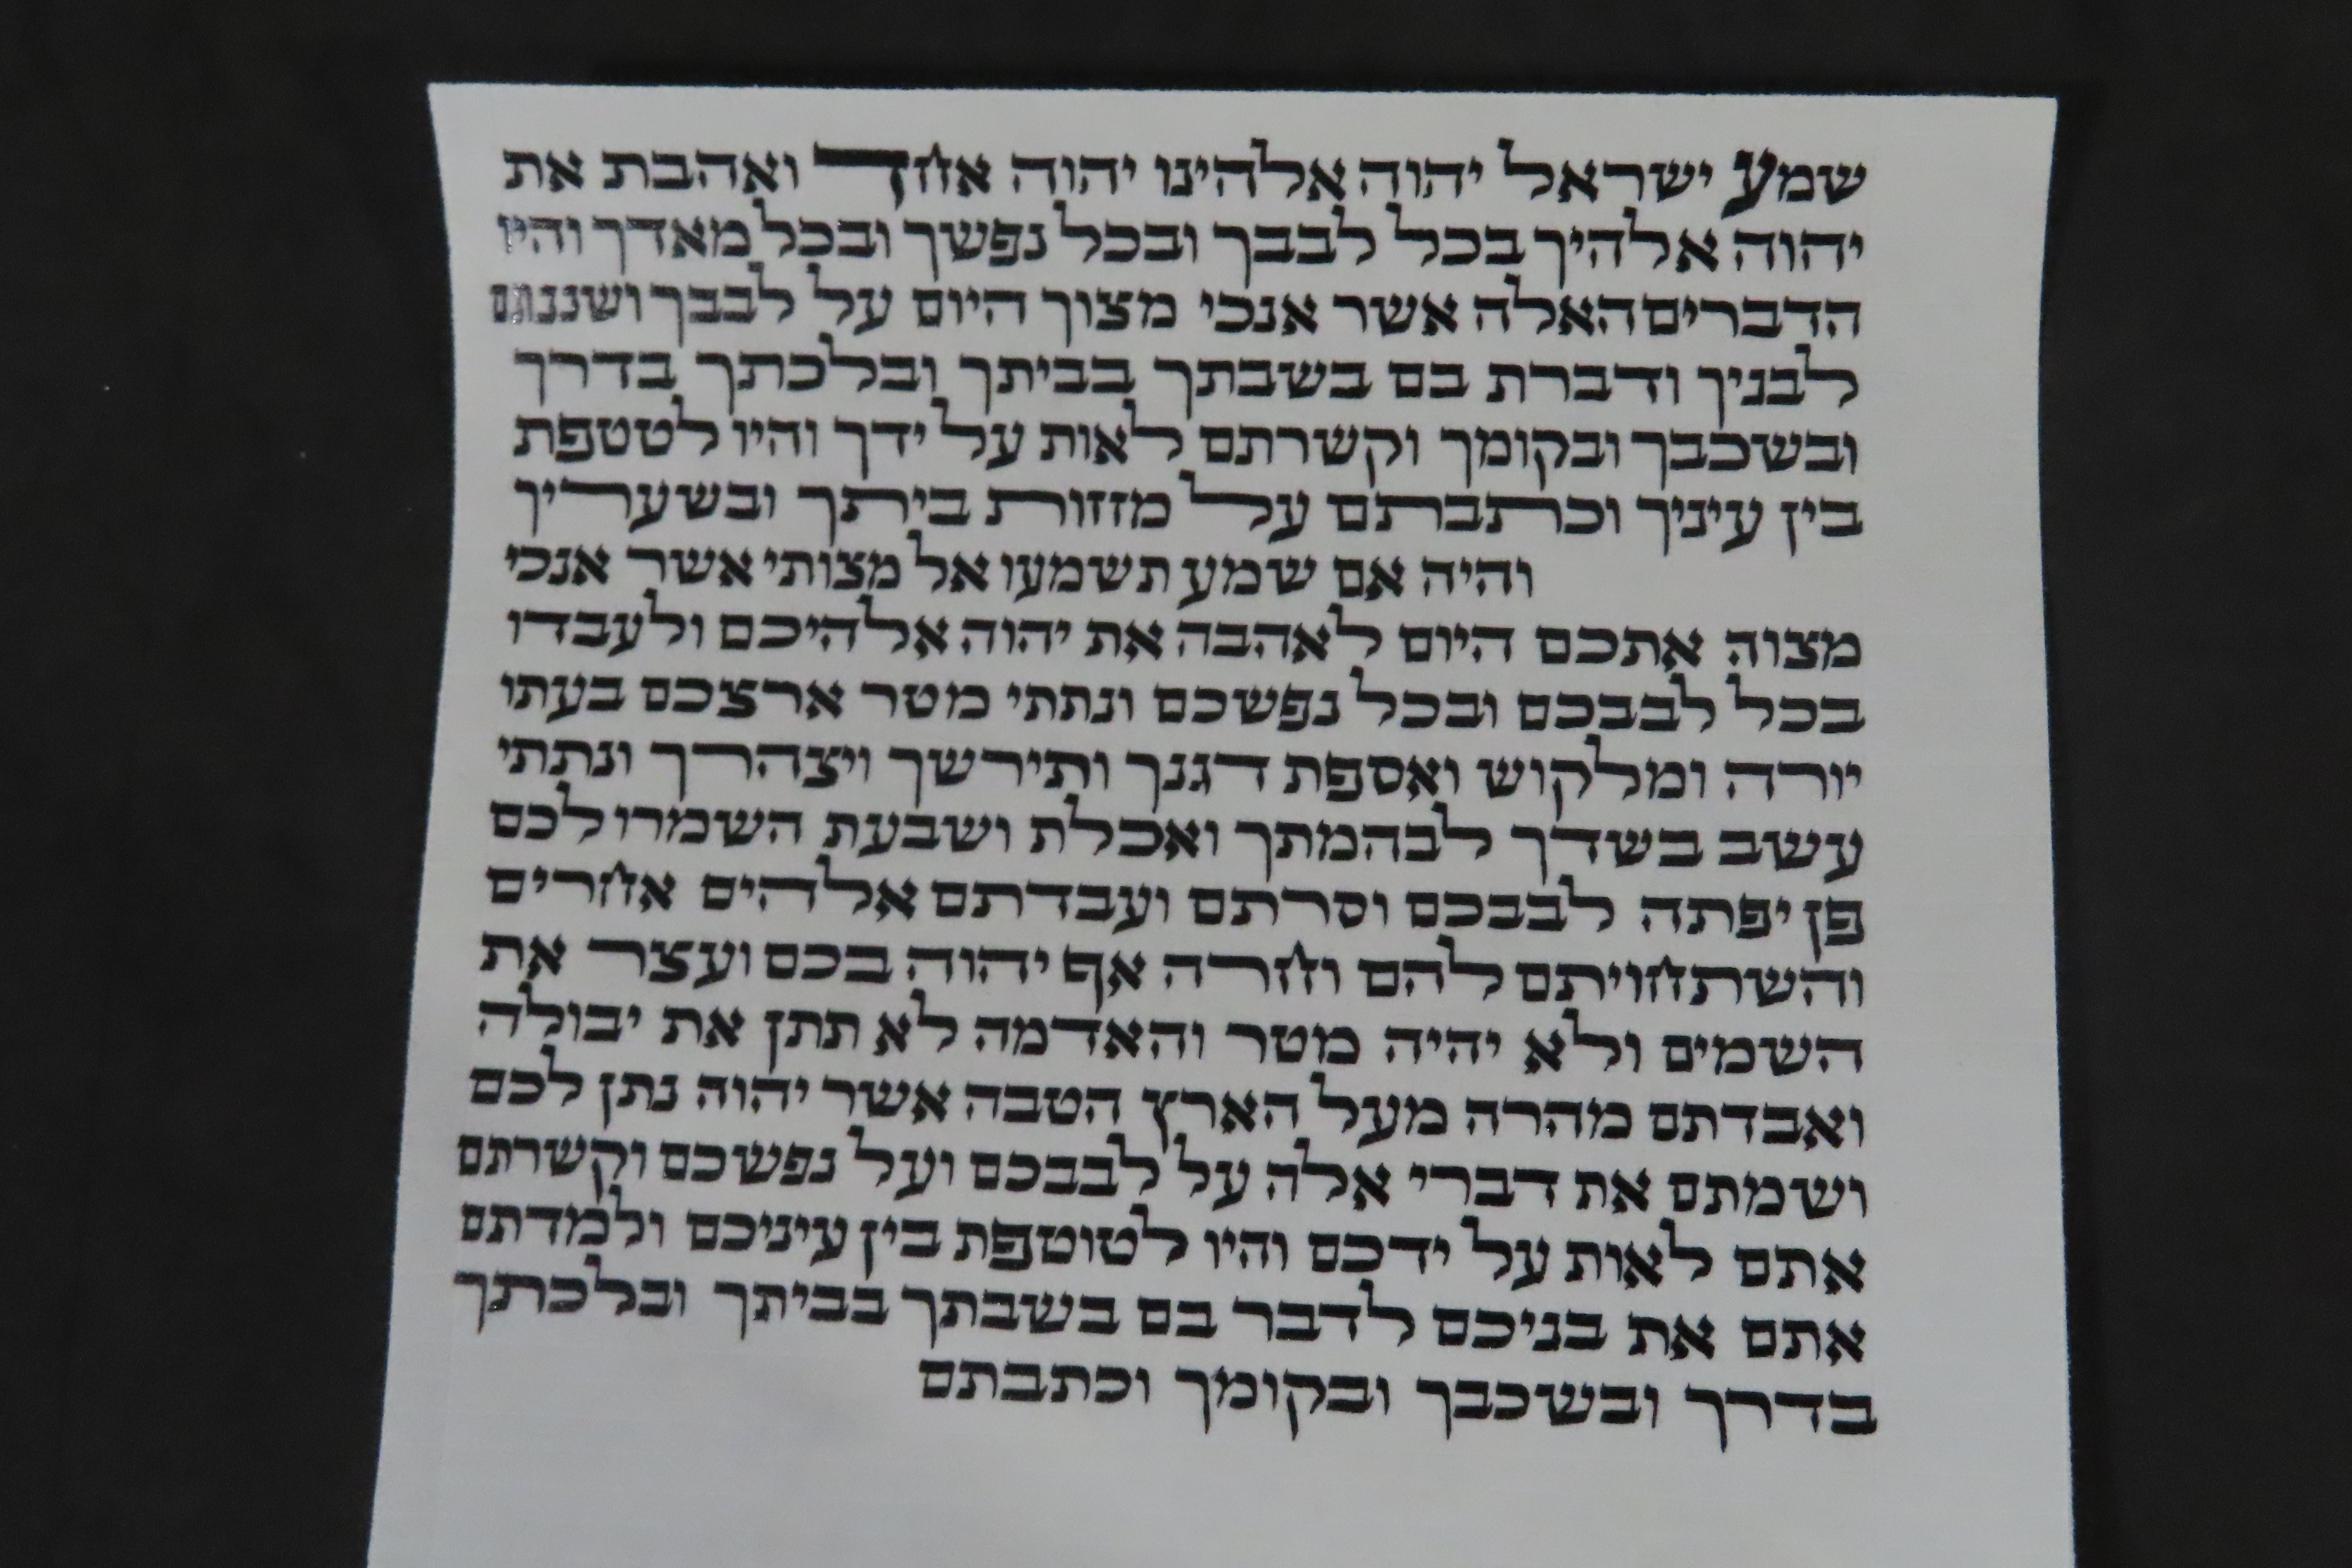 שמע ישראל יהוה אלהינו יהוה אחד ואהבת את
יהוה אלהיך בכל לבבך ובכל נפשך ובכל מאדך והיו
הדברים האלה אשר אנכי מצוך היום על לבבך ושננתם
לבניך ודברת בם בשבתך בביתך ובלכתך בדרך
ובשכבך ובקומך וקשרתם לאות על ידך והיו לטטפת
בין עיניך וכתבתם על מזוזות ביתך ובשעריך
והיה אם שמע תשמעו אל מצותי אשר אנכי
מצוה אתכם היום לאהבה את יהוה אלהיכם ולעבדו
בכל לבבכם ובכל נפשכם ונתתי מטר ארצכם בעתו
יורה ומלקוש ואספת דגנך ותירשך ויצהרך ונתתי
עשב בשדך לבהמתך ואכלת ושבעת השמרו לכם
פן יפתה לבבכם וסרתם ועבדתם אלהים אחרים
והשתחויתם להם וחרה אף יהוה בכם ועצר את
השמים ולא יהיה מטר והאדמה לא תתן את יבולה
ואבדתם מהרה מעל הארץ הטבה אשר יהוה נתן לכם
ושמתם את דברי אלה על לבבכם ועל נפשכם וקשרתם
אתם לאות על ידכם והיו לטוטפת בין עיניכם ולמדתם
אתם את בניכם לדבר בם בשבתך בביתך ובלכתך
בדרך ובשכבך ובקומך וכתבתם